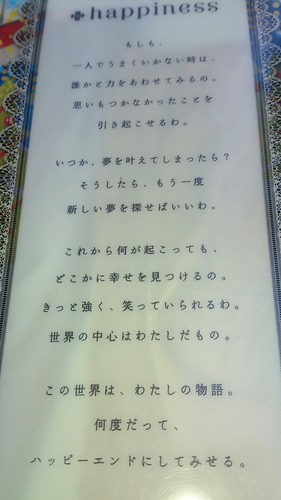 happiness
もしも、
一人でうまくいかない時は、
誰かと力をあわせてみるの。
思いもつかなかったことを
引き起こせるわ。
いつか、夢を叶えてしまったら？
そうしたら、もう一度
新しい夢を探せばいいわ。
これから何が起こっても、
どこかに幸せを見つけるの。
きっと強く、笑っていられるわ。
世界の中心はわたしだもの。
この世界は、わたしの物語。
何度だって、
ハッピーエンドにしてみせる。